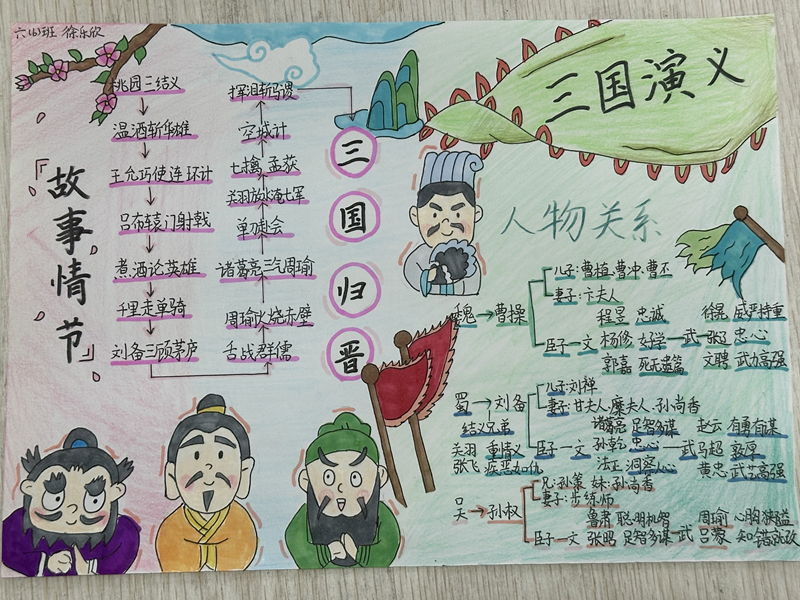 六(6)班 徐乐欣
三国演义
『故事情节』
桃园三结义
温酒斩华雄
王允巧使连环计
吕布辕门射戟
煮酒论英雄
千里走单骑
刘备三顾茅庐
舌战群儒
周瑜火烧赤壁
诸葛亮三气周瑜
单刀赴会
关羽放水淹七军
七擒孟获
空城计
挥泪斩马谡
三国归晋
人物关系
魏 曹操
儿子:曹植.曹冲.曹丕
妻子:卞夫人
臣子 文 武
程昱 忠诚 徐晃 威严持重
杨修 好学 张辽 忠心
郭嘉 死无遗篇 文聘 武力高强
蜀 刘备
儿子:刘禅
妻子:甘夫人.糜夫人.孙尚香
结义兄弟
关羽 重情义
张飞 疾恶如仇
臣子 文 武
诸葛亮 足智多谋 赵云 有勇有谋
孙乾 忠心 马超 敦厚
法正 洞察人心 黄忠 武艺高强
吴 孙权
兄:孙策 妹:孙尚香
妻子:步练师
臣子 文 武
鲁肃 聪明机智 周瑜 心胸狭隘
张昭 足智多谋 吕蒙 知错就改